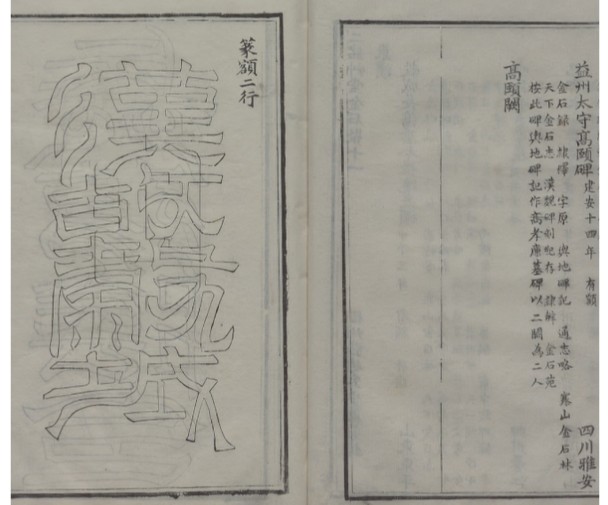 益州太守高頤碑 建安十四年 有額 四川雅安
金石錄 隸釋 字原 輿地碑記 通志略 寒山金石林
天下金石志 漢魏碑刻紀存 隸辨 金石苑
按此碑輿地碑記作高孝廉墓碑以二闕為二人
高頤闕
篆額二行
漢